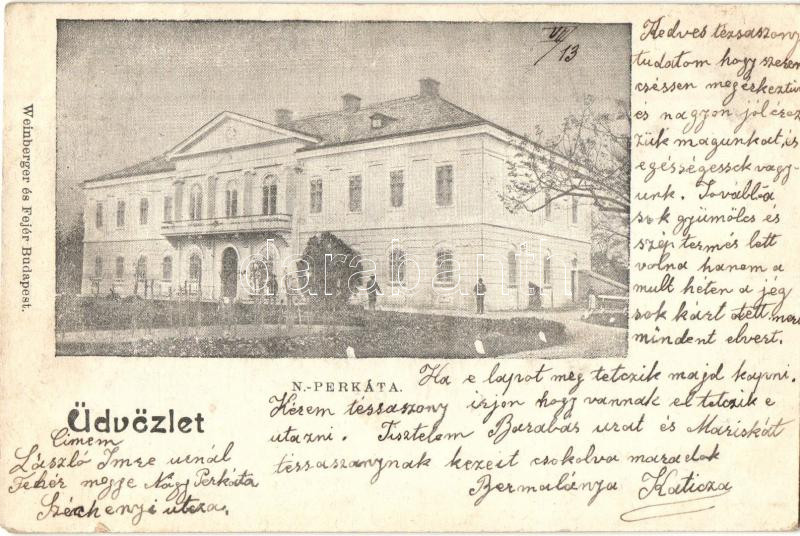 VII/13
Kedves tézsaszony
tudatom hogy szeren
cséssen megérkeztün
és nagyon jól érez
zük magunkat, és
egésségessek vagy-
unk. Továbbá
sok gyümölcs és
szép termés lett
volna hanem a
mult héten a jég
sok kárt tett mert
mindent elvert.
Weinberger és Fejér Budapest.
darabanth.hu
N.-PERKÁTA.
Üdvözlet
Ha e lapot meg tetczik majd kapni.
Kérem téssaszony irjon hogy vannak el tetczik e
utazni. Tisztelem Barabás urat és Máriskát
téssaszonynak kezeit csokolva maradok
Katicza
Cimem
László Imre urnál
Fehér megye Nagy Perkáta
Széchenyi utcza.